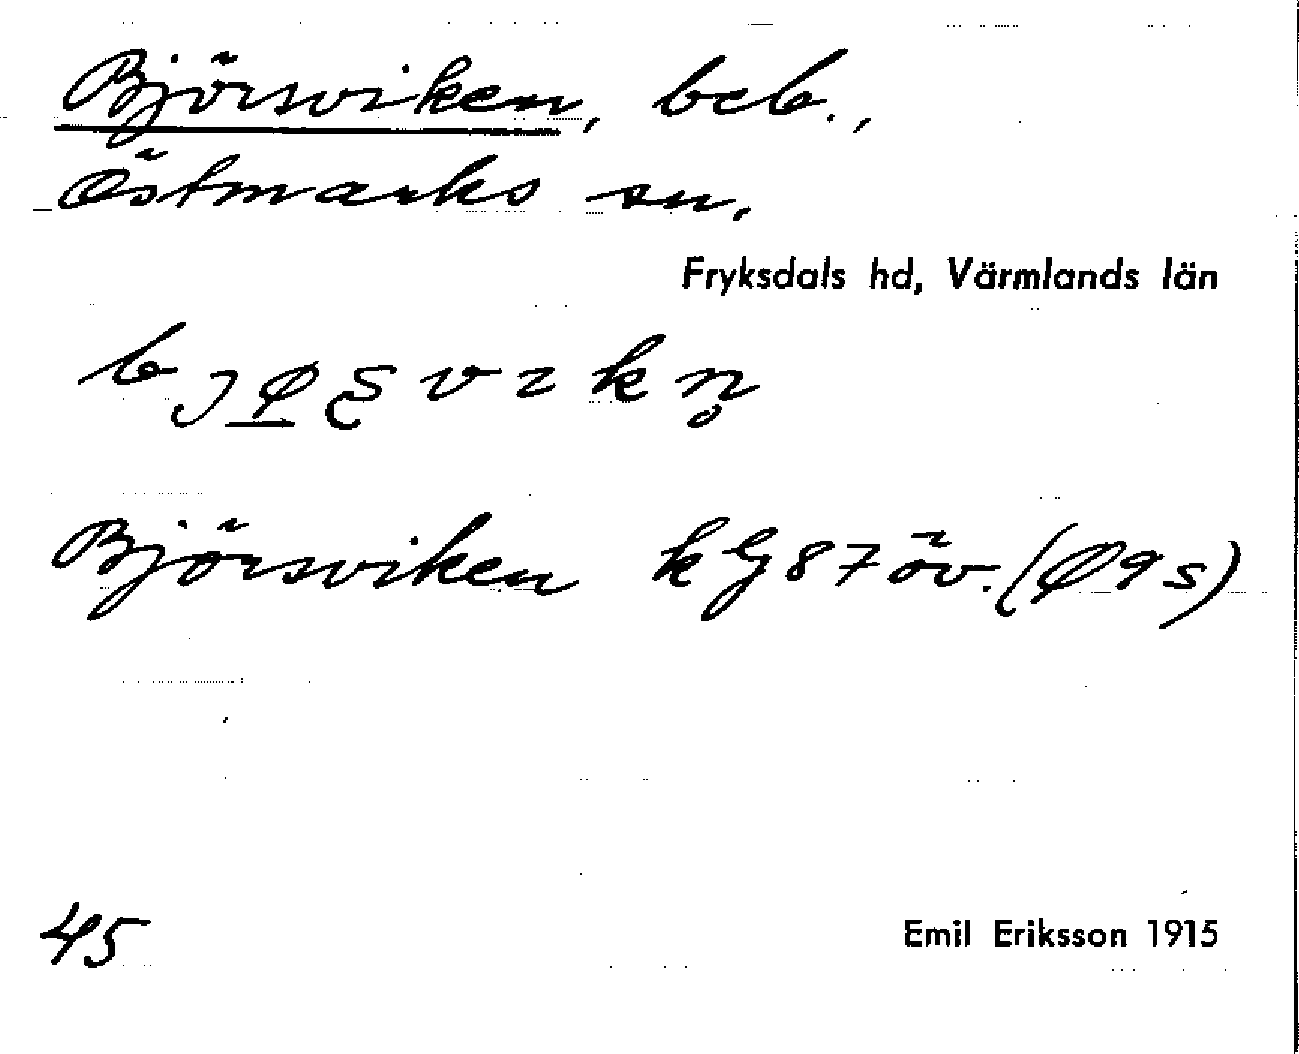 Björsviken, beb.,
Östmarks sn,
Fryksdals hd, Värmlands län
Björsviken kG 87 öv. (Ø 9 s)
45
Emil Eriksson 1915